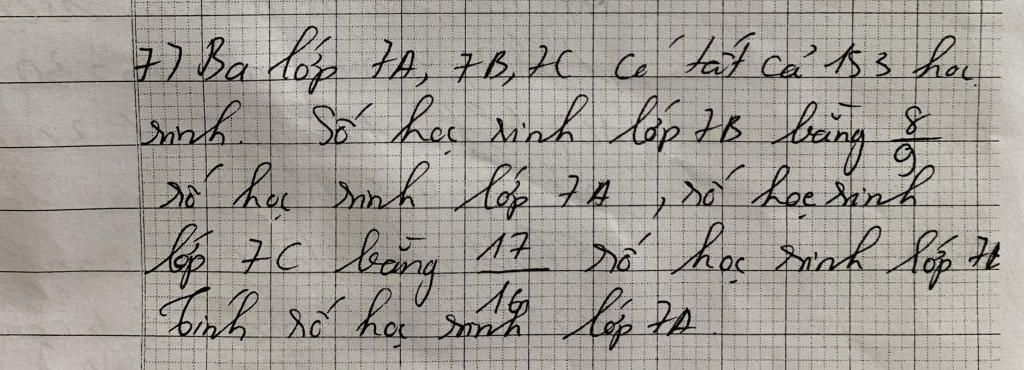 7) Ba lớp 7A, 7B, 7C có tất cả 153 học
sinh. Số học sinh lớp 7B bằng 8/9
số học sinh lớp 7A, số học sinh
lớp 7C bằng 17/16 số học sinh lớp
Tính số học sinh lớp 7A.